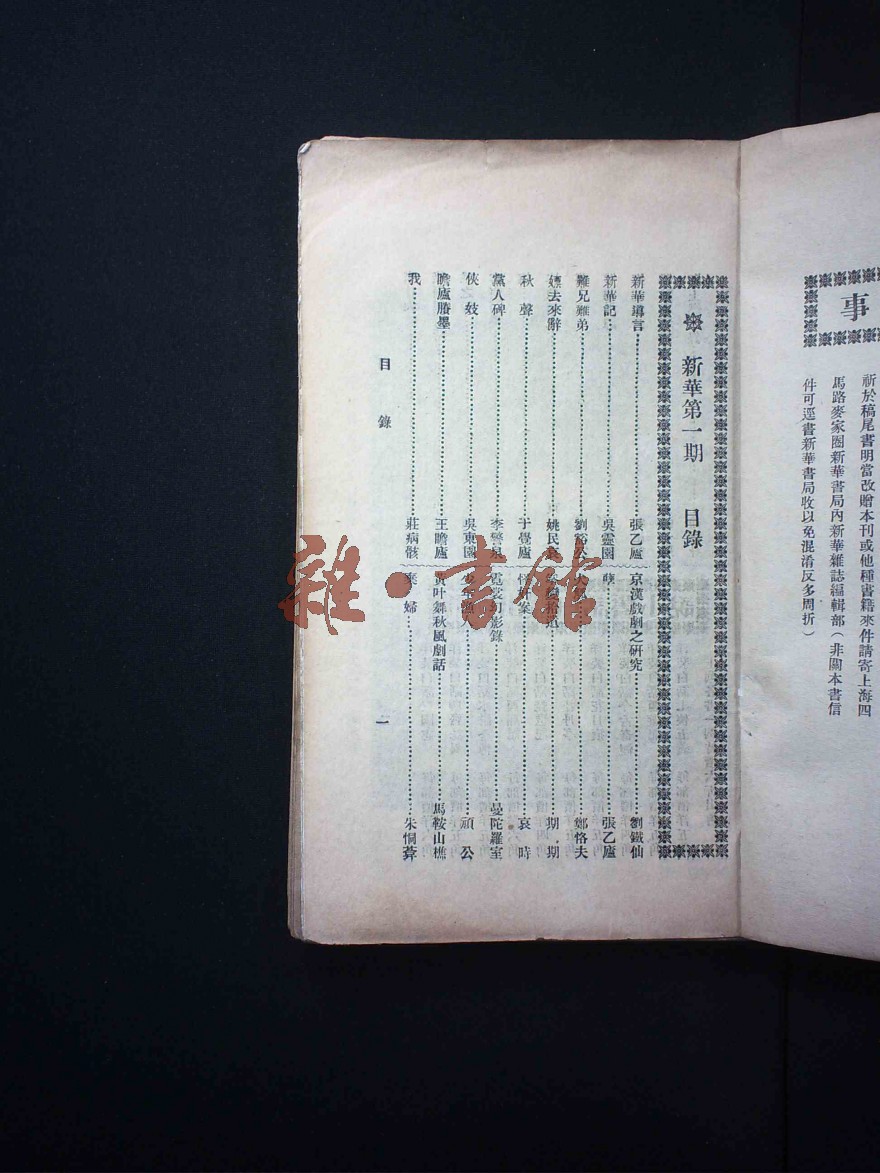 事
祈於稿尾書明當改贈本刊或他種書籍來件請寄上海四
馬路麥家圈新華書局內新華雜誌編輯部(非關本書信
件可逕書新華書局收以免混淆反多周折)
新華第一期 目錄
新華導言 張乙廬
新華記 吳靈園
難兄難弟 劉豁公
嫖去來辭 姚民哀
秋聲 于覺廬
黨人碑 李警泉
俠妓 吳東園
瞻廬賸墨 王瞻廬
我 莊病骸
京漢戲劇之研究 劉鐵仙
孽 張乙廬
鄭恪夫
期期
案 哀時
霓裳幻影錄 曼陀羅室
頑公
黃叶舞秋風劇話 馬鞍山樵
婦 朱恫葊
目錄
一
雜·書館